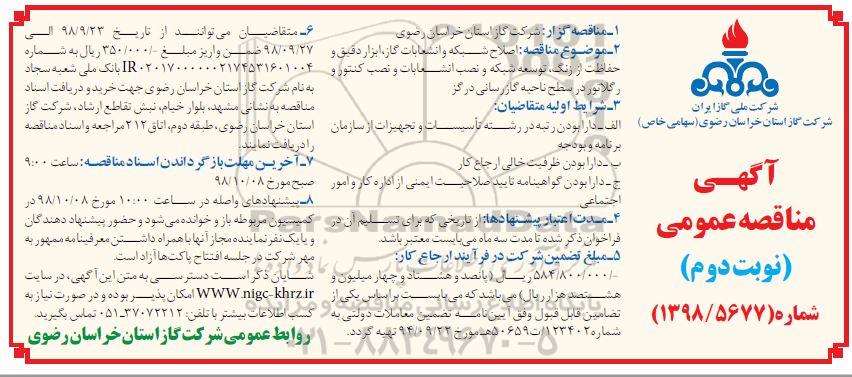 شرکت ملی گاز ایران
شرکت گاز استان خراسان رضوی (سهامی خاص)
آگهـی
مناقصه عمومی
(نوبت دوم)
شماره (۱۳۹۸/۵۶۷۷)
۱ـ مناقصه گزار: شرکت گاز استان خراسان رضوی
۲ـ موضوع مناقصه: اصلاح شبکه و انشعابات گاز، ابزار دقیق و
حفاظت از زنگ، توسعه شبکه و نصب انشعابات و نصب کنتور و
رگلاتور در سطح ناحیه گازرسانی درگز
۳ـ شرایط اولیه متقاضیان:
الف ـ دارا بودن رتبه در رشته تأسیسات و تجهیزات از سازمان
برنامه و بودجه
ب ـ دارا بودن ظرفیت خالی ارجاع کار
ج ـ دارا بودن گواهینامه تایید صلاحیت ایمنی از اداره کار و امور
اجتماعی
۴ـ مدت اعتبار پیشنهادها: از تاریخی که برای تسلیم آن در
فراخوان ذکر شده تا مدت سه ماه می‌بایست معتبر باشد.
۵ـ مبلغ تضمین شرکت در فرآیند ارجاع کار:
۵۸۴/۸۰۰/۰۰۰/- ریال (پانصد و هشتاد و چهار میلیون و
هشتصد هزار ریال) می‌باشد که می‌بایست بر اساس یکی از
تضامین قابل قبول وفق آیین‌نامه تضمین معاملات دولتی به
شماره ۱۲۳۴۰۲/ت۵۰۶۵۹هـ مورخ ۹۴/۰۹/۲۲ تهیه گردد.
۶ـ متقاضیان می‌توانند از تاریخ ۹۸/۹/۲۳ الی
۹۸/۰۹/۲۷ ضمن واریز مبلغ ۳۵۰/۰۰۰/- ریال به شماره
IR۰۲۰۱۷۰۰۰۰۰۰۲۱۷۴۵۳۱۶۰۱۰۰۴ بانک ملی شعبه سجاد
به نام شرکت گاز استان خراسان رضوی جهت خرید و دریافت اسناد
مناقصه به نشانی مشهد، بلوار خیام، نبش تقاطع ارشاد، شرکت گاز
استان خراسان رضوی، طبقه دوم، اتاق ۲۱۲ مراجعه و اسناد مناقصه
را دریافت نمایند.
۷ـ آخرین مهلت بازگرداندن اسناد مناقصه: ساعت ۹:۰۰
صبح مورخ ۹۸/۱۰/۰۸
۸ـ پیشنهادهای واصله در ساعت ۱۰:۰۰ مورخ ۹۸/۱۰/۰۸ در
کمیسیون مربوطه باز و خوانده می‌شود و حضور پیشنهاد دهندگان
و یا یک نفر نماینده مجاز آنها با همراه داشتن معرفینامه ممهور به
مهر شرکت در جلسه افتتاح پاکت‌ها آزاد است.
شایان ذکر است دسترسی به متن این آگهی، در سایت
WWW.nigc-khrz.ir امکان پذیر بوده و در صورت نیاز به
کسب اطلاعات بیشتر با تلفن: ۳۷۰۷۲۲۱۲-۰۵۱ تماس بگیرید.
روابط عمومی شرکت گاز استان خراسان رضوی
۰۲۱-۸۸۳۴۹۶۷۰-۵